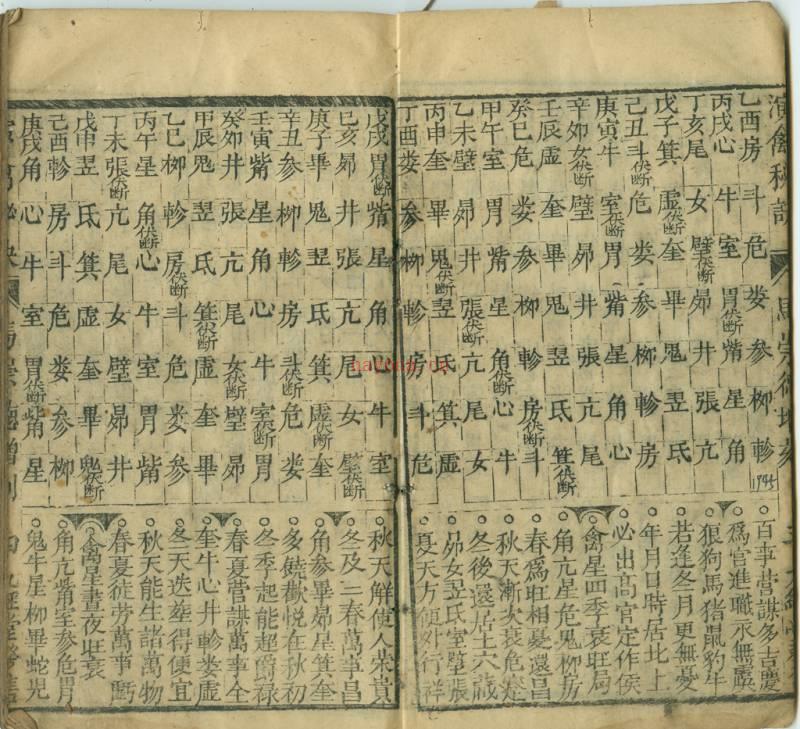 演禽秘訣
乙酉房斗危婁參柳軫
丙戌心牛室胃伏斷觜星角
丁亥尾女壁伏斷昴井張亢
戊子箕虛伏斷奎畢鬼翌氐
己丑斗伏斷危婁參柳軫房
庚寅牛室伏斷胃觜星角心
辛卯女伏斷壁昴井張亢尾
壬辰虛奎畢鬼翌氐箕伏斷
癸巳危婁參柳軫房伏斷斗
甲午室胃觜星角伏斷心牛
乙未壁昴井張伏斷亢尾女
丙申奎畢鬼伏斷翌氐箕虛
丁酉婁參柳軫房斗危
百事營謀多吉慶
為官進職永無虞
狼狗馬豬鼠豹牛
若逢冬月更無憂
年月日時居此上
必出高官定作侯
禽星四季衰旺局
角亢星危鬼柳房
春為旺相憂還昌
秋天漸次衰危
冬後還居上六
昴女翌氐室壁張
夏天方便外行祥
戊戌胃伏斷觜星角心牛室
己亥昴井張亢尾女壁伏斷
庚子畢鬼翌氐箕虛伏斷奎
辛丑參柳軫房斗伏斷危婁
壬寅觜星角心牛室伏斷胃
癸卯井張亢尾女伏斷壁昴
甲辰鬼翌氐箕伏斷虛奎畢
乙巳柳軫房伏斷斗危婁參
丙午星角伏斷心牛室胃觜
丁未張伏斷亢尾女壁昴井
戊申翌氐箕虛奎畢鬼伏斷
己酉軫房斗危婁參柳
庚戌角心牛室胃伏斷觜星
秋天解使人榮貴
冬及三春萬事昌
角參畢昴星箕奎
多饒歡悅在秋初
冬季起能超爵祿
春夏營謀萬事全
奎牛心井軫婁虛
冬天迭產得便宜
秋天能生諸萬物
春夏徒勞萬事虧
禽星晝夜旺衰
角亢觜室參危胃
鬼牛星柳畢蛇